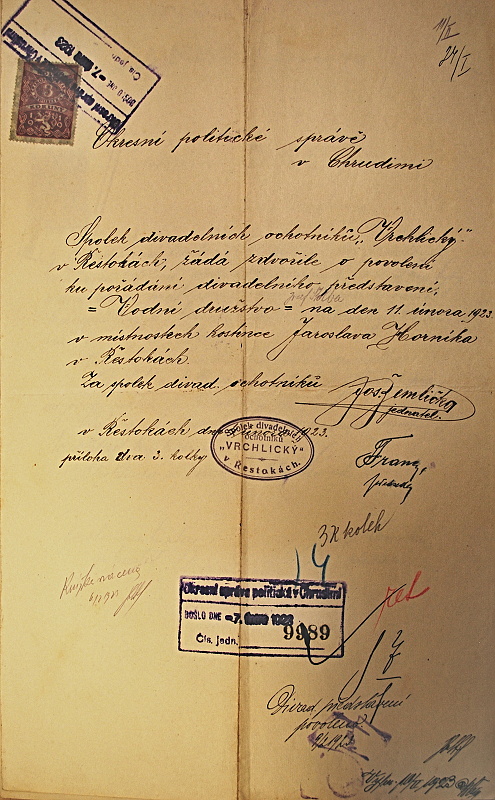 11/II
24/I
Okresní správa politická v Chrudimi
DOŠLO DNE -7. února 1923
Čís. jedn.
Okresní politické správě
v Chrudimi
Spolek divadelních ochotníků „Vrchlický“
v Řestokách, žádá zdvořile o povolení
ku pořádání divadelního představení,
= Vodní družstvo = na den 11. února 1923
v místnostech hostince Jaroslava Horníka
v Řestokách
Za spolek divad. ochotníků Jos. Žemlička
jednatel.
v Řestokách dne 1923.
Spolek divadelních
ochotníků
„VRCHLICKÝ“
v Řestokách.
příloha dva 3. kolky
3K kolek
14
Okresní správa politická v Chrudimi
DOŠLO DNE -7. února 1923
Čís. jedn. 9989
Divad. představení
povoleno
1923